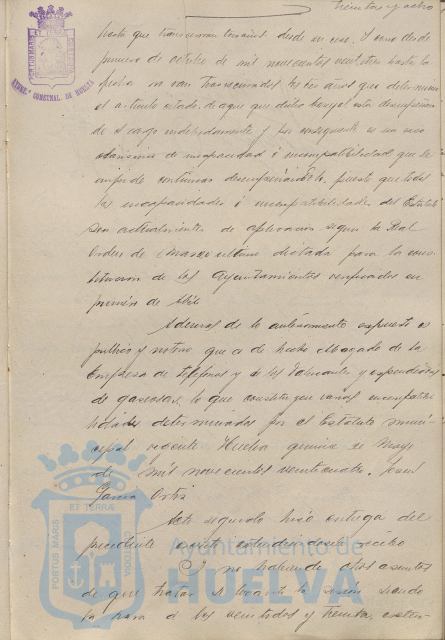 treinta y ocho
hasta que transcurran tres años desde su cese. Y como desde
primero de octubre de mil novecientos veintitres hasta la
fecha no van transcurridos los tres años que determina
el articulo citado, de aqui que dicho Concejal está desempeñan-
do el cargo indebidamente y por consiguiente es un caso
de incapacidad ó incompatibilidad que le
impide continuar desempeñandolo, puesto que todas
las incapacidades é incompatibilidades del Estatuto
son actualmente de aplicacion segun la Real
Orden de Marzo ultimo dictada para la cons-
titucion de los Ayuntamientos verificados en
primero de Abril
Ademas de lo anteriormente expuesto es
publico y notorio que es de hecho Abogado de la
Empresa de Telefonos y de los fabricantes y expendedores
de gaseosas, lo que constituyen varias incompatibi-
lidades determinadas por el Estatuto muni-
cipal vigente Huelva quince de Mayo
de mil novecientos veinticuatro.
Garcia Ortiz
Acto seguido hizo entrega del
precedente escrito
Y no habiendo otros asuntos
de que tratar se levantó la sesión siendo
la hora de las veintidos y treinta, exten-
PORTUS MARIS
AYUNT.º CONSTNAL. DE HUELVA
PORTUS MARIS
ET TERRÆ
CUSTODIA
Ayuntamiento de
HUELVA